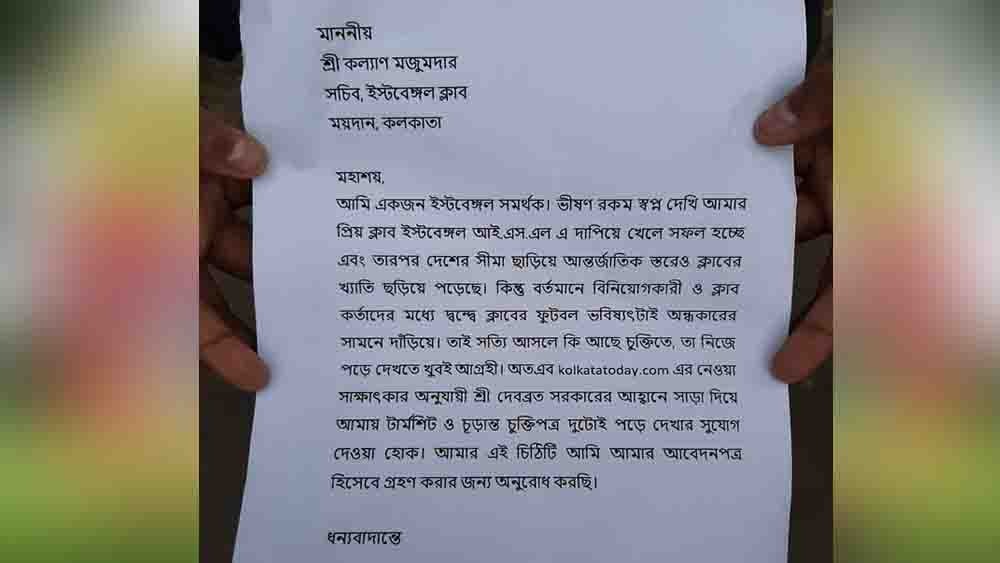 মাননীয়
শ্রী কল্যাণ মজুমদার
সচিব, ইস্টবেঙ্গল ক্লাব
ময়দান, কলকাতা
মহাশয়,
আমি একজন ইস্টবেঙ্গল সমর্থক। ভীষণ রকম স্বপ্ন দেখি আমার
প্রিয় ক্লাব ইস্টবেঙ্গল আই.এস.এল এ দাপিয়ে খেলে সফল হচ্ছে
এবং তারপর দেশের সীমা ছাড়িয়ে আন্তর্জাতিক স্তরেও ক্লাবের
খ্যাতি ছড়িয়ে পড়েছে। কিন্তু বর্তমানে বিনিয়োগকারী ও ক্লাব
কর্তাদের মধ্যে দ্বন্দ্বে ক্লাবের ফুটবল ভবিষ্যৎটাই অন্ধকারের
সামনে দাঁড়িয়ে। তাই সত্যি আসলে কি আছে চুক্তিতে, তা নিজে
পড়ে দেখতে খুবই আগ্রহী। অতএব kolkatatoday.com এর নেওয়া
সাক্ষাৎকার অনুযায়ী শ্রী দেবব্রত সরকারের আহ্বানে সাড়া দিয়ে
আমায় টার্মশিট ও চূড়ান্ত চুক্তিপত্র দুটোই পড়ে দেখার সুযোগ
দেওয়া হোক। আমার এই চিঠিটি আমি আমার আবেদনপত্র
হিসেবে গ্রহণ করার জন্য অনুরোধ করছি।
ধন্যবাদান্তে